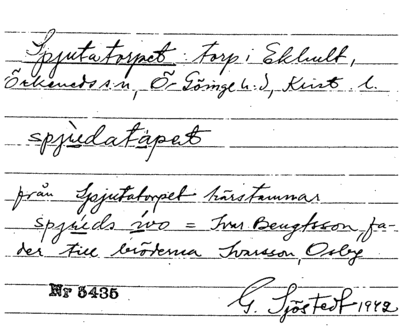 Spjutatorpet: torp i Ekhult,
Örkeneds sn, Ö. Göinge h:d, Krist. l.
spjudatåpet
från Spjutatorpet härstammar
spjuds ivo = Ivar Bengtsson, fa-
der till bröderna Ivarsson, Osby
Nr 5435
G. Sjöstedt 1942